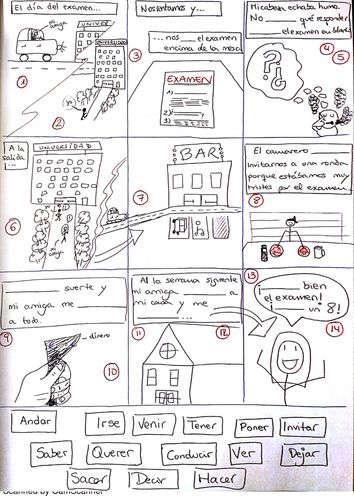 El día del examen...
mi amiga
UNIVER
UNIVERSIDAD
yo
1
2
Nos sentamos y...
... nos ____ el examen
encima de la mesa
3
EXAMEN
1)
2)
3)
Mi cabeza echaba humo.
No ____ qué responder,
el examen en blanco
4
5
A la
salida
...
UNIVERSIDAD
yo
mi amiga
6
BAR
7
El camarero ____
invitarnos a una ronda
porque estábamos muy
tristes por el examen
8
____ suerte y
mi amiga me ____
a todo.
dinero
9
10
A la semana siguiente
mi amiga ____ a
mi casa y me ____
____ ...
11
12
13
¡____ bien
el examen!
¡____ un 8!
14
Andar
Irse
Venir
Tener
Poner
Invitar
Saber
Querer
Conducir
Ver
Dejar
Sacar
Decir
Hacer
Scanned by CamScanner